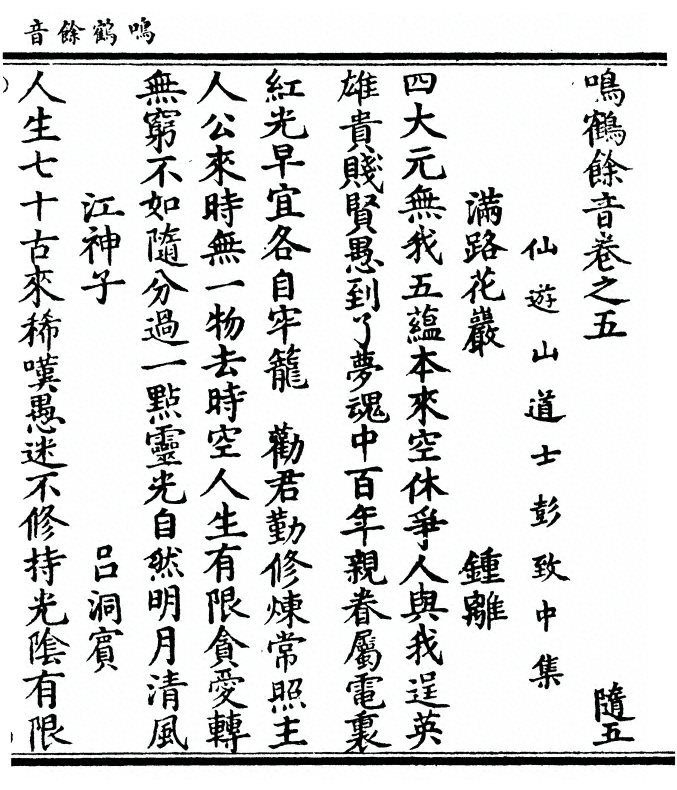 鳴鶴餘音
鳴鶴餘音卷之五 隨五
仙遊山道士彭致中集
滿路花巖 鍾離
四大元無我五藴本來空休爭人與我逞英
雄貴賤賢愚到了夢魂中百年親眷屬電裏
紅光早宜各自牢籠 勸君勤修煉常照主
人公來時無一物去時空人生有限貪愛轉
無窮不如隨分過一點靈光自然明月清風
江神子 吕洞賓
人生七十古來稀嘆愚迷不修持光陰有限